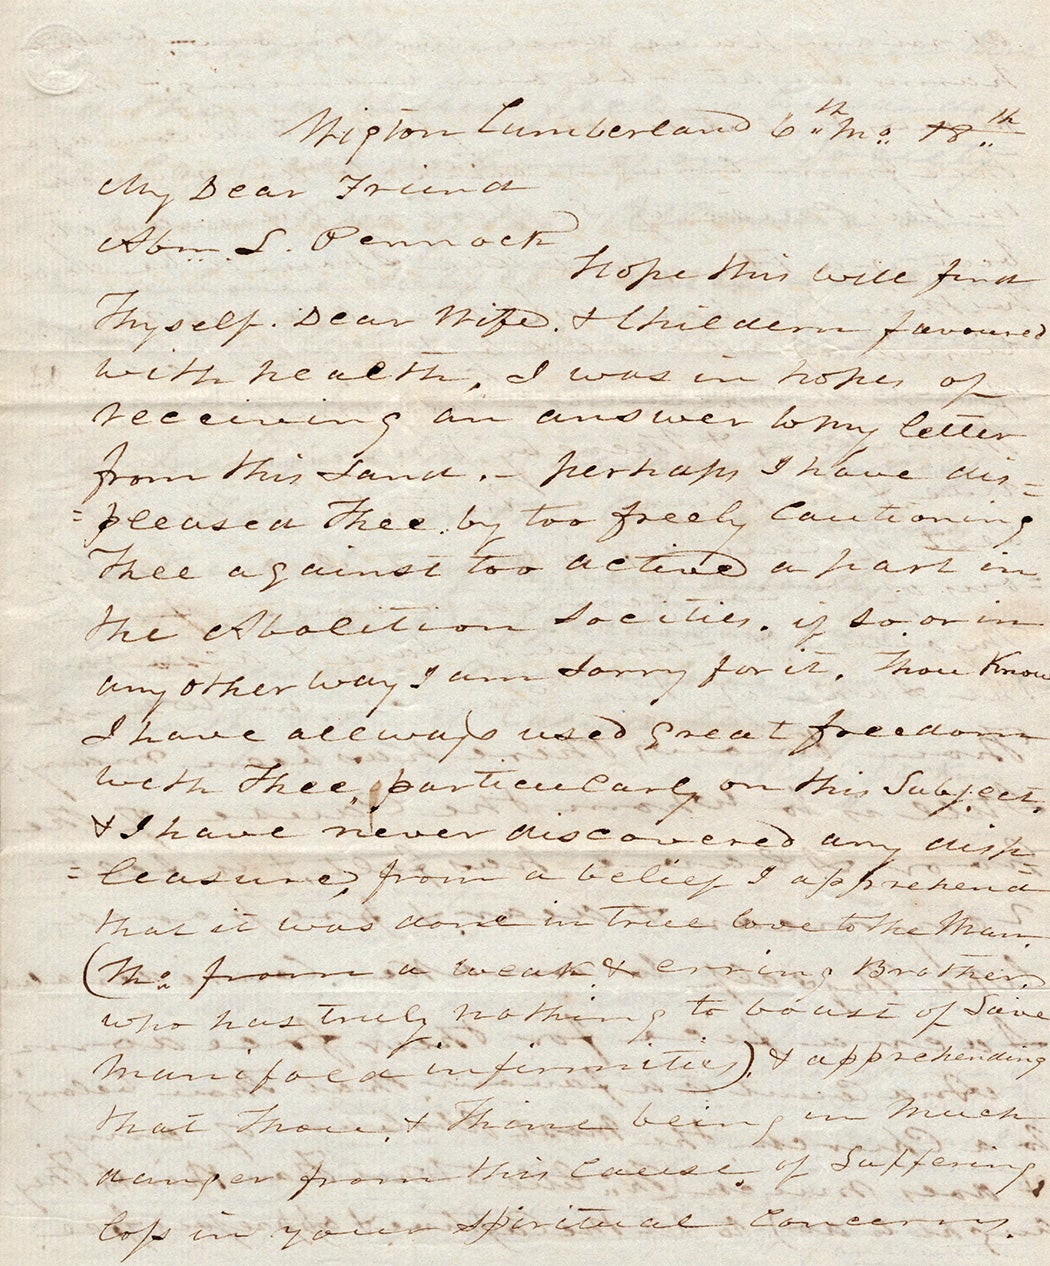 Wigton Cumberland 6th Mo. 18th
My Dear Friend
Abm. L. Pennock
Hope this will find
Thyself. Dear Wife. & Childern favoured
with health, I was in hopes of
receiving an answer to my letter
from this Land. - perhaps I have dis=
=pleased Thee. by too freely Cautioning
Thee against too active a part in
the Abolition Socities. if so. or in
any other way I am Sorry for it. Thou Know
I have allways used great freedom
with Thee, particularly on this Subject,
& I have never discovered any disp
=leasure, from a belief I apprehend
that it was done in true love to the Man.
(Tho. from a weak & erring Brother.
who has truly nothing to boast of Save
Manifold infirmities). & apprehending
that Thou, & Thine being in Much
danger from this Cause, of Suffering
loss in your Spiritual Concerns.